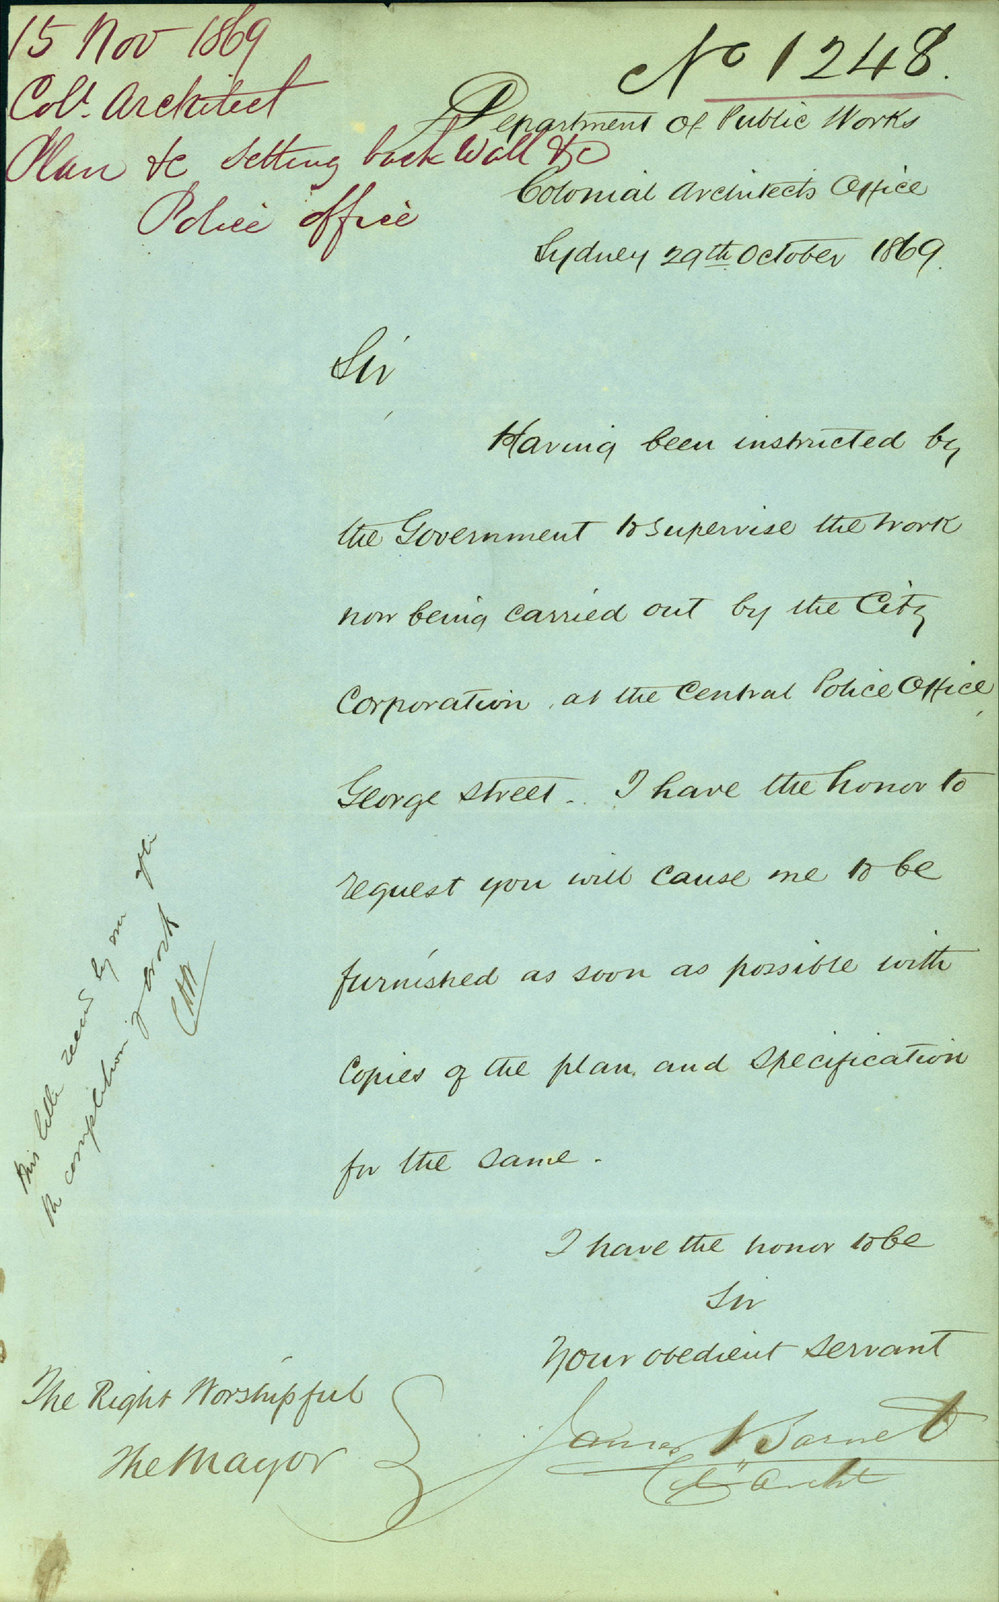 15 Nov 1869
Col. Architect
Plan &c setting back Wall &c
Police office
No 1248.
Department of Public Works
Colonial Architects Office
Sydney 29th October 1869.
Sir
Having been instructed by
the Government to supervise the work
now being carried out by the City
Corporation, at the Central Police Office,
George Street. I have the honor to
request you will cause me to be
furnished as soon as possible with
copies of the plan and specification
for the same.
I have the honor to be
Sir
Your obedient servant
James Barnet
Col Archt
The Right Worshipful
The Mayor
This letter received by me after
the completion of work